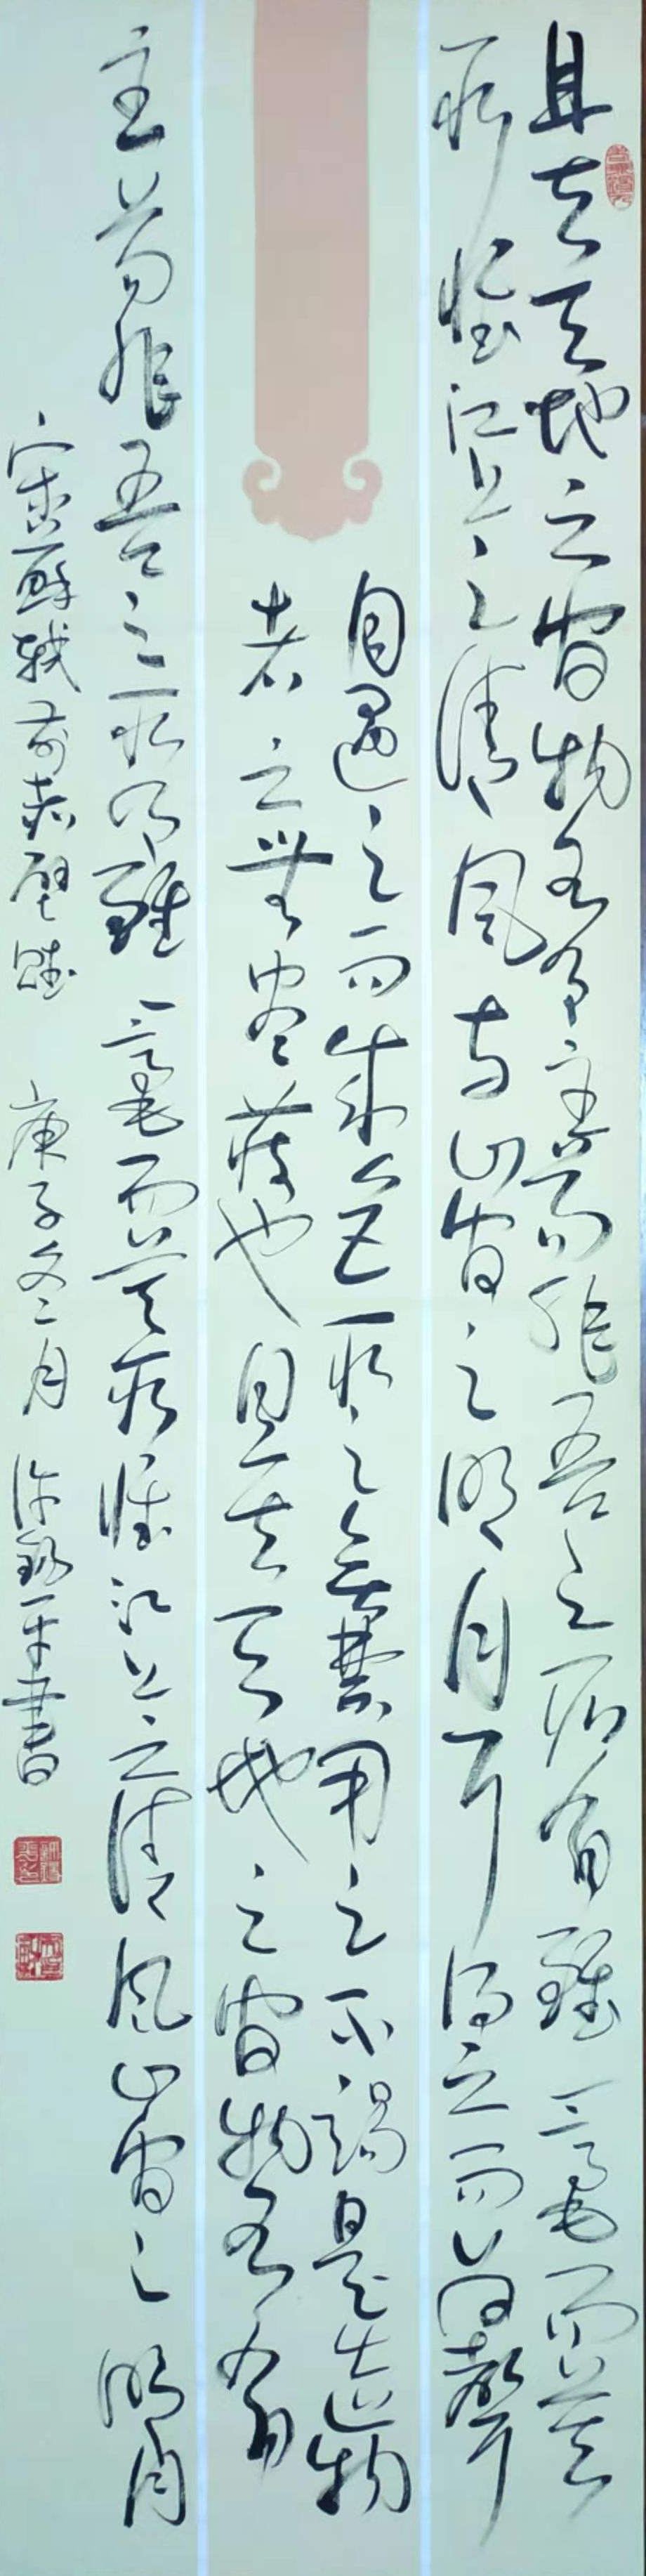 且夫天地之間物各有主苟非吾之所有雖一毫而莫
取惟江上之清風與山間之明月耳得之而為聲
目遇之而成色取之無禁用之不竭是造物
者之無盡藏也且夫天地之間物各有
主苟非吾之所有雖一毫而莫取惟江上之清風山間之明月
宋蘇軾前赤壁賦 庚子冬月 許平書